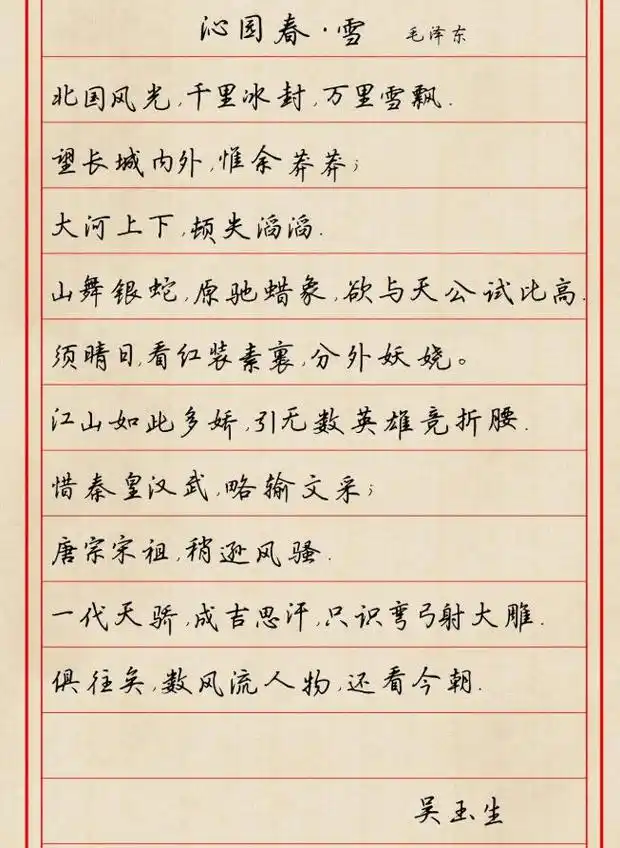 沁园春·雪 毛泽东
北国风光,千里冰封,万里雪飘.
望长城内外,惟余莽莽;
大河上下,顿失滔滔.
山舞银蛇,原驰蜡象,欲与天公试比高.
须晴日,看红装素裹,分外妖娆。
江山如此多娇,引无数英雄竞折腰.
惜秦皇汉武,略输文采;
唐宗宋祖,稍逊风骚.
一代天骄,成吉思汗,只识弯弓射大雕.
俱往矣,数风流人物,还看今朝.
吴玉生